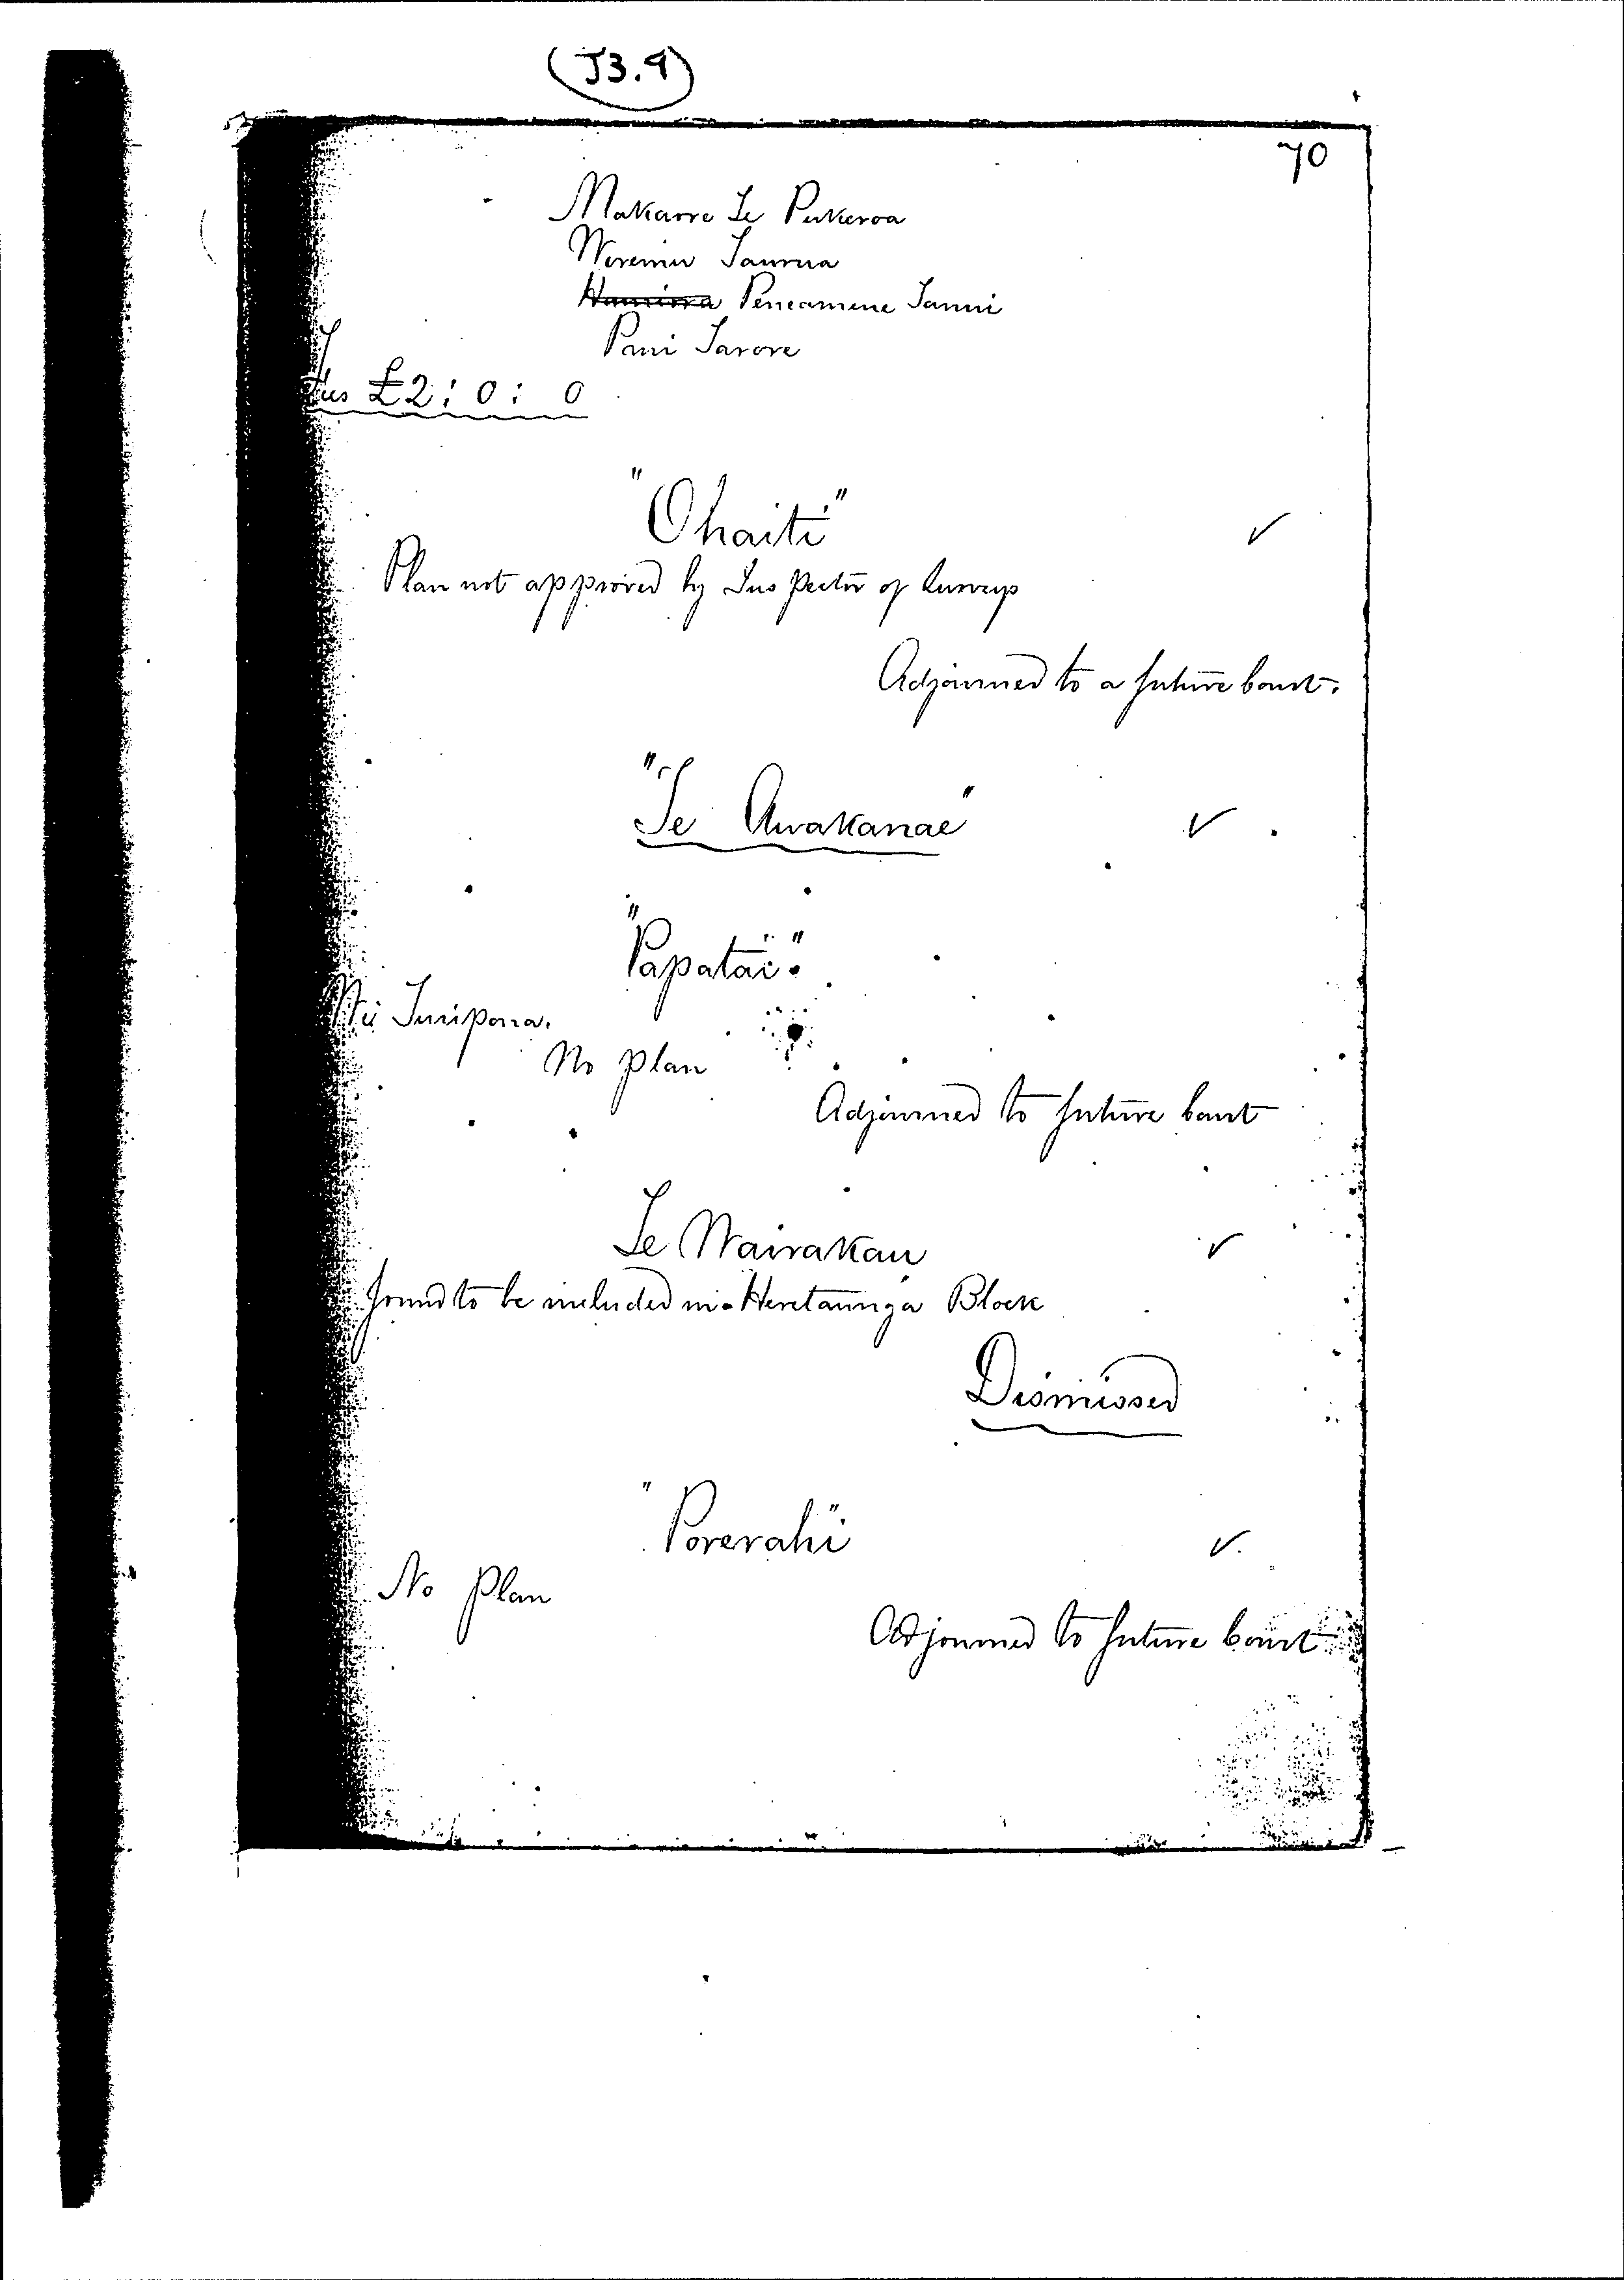 (J3.9)
70
Makarre Te Pukeroa
Wiremu Taurua
Hamiora Peneamene Tanui
Pani Tarore
Fees £2 : 0 : 0
"Ohaiti"
Plan not approved by Inspector of Surveys
Adjourned to a future Court.
"Te Awakanae"
"Papatai".
No Plan
Adjourned to future Court
Te Wairakau
found to be included in Heretaunga Block
Dismissed
"Porerahi"
No Plan
Adjourned to future Court